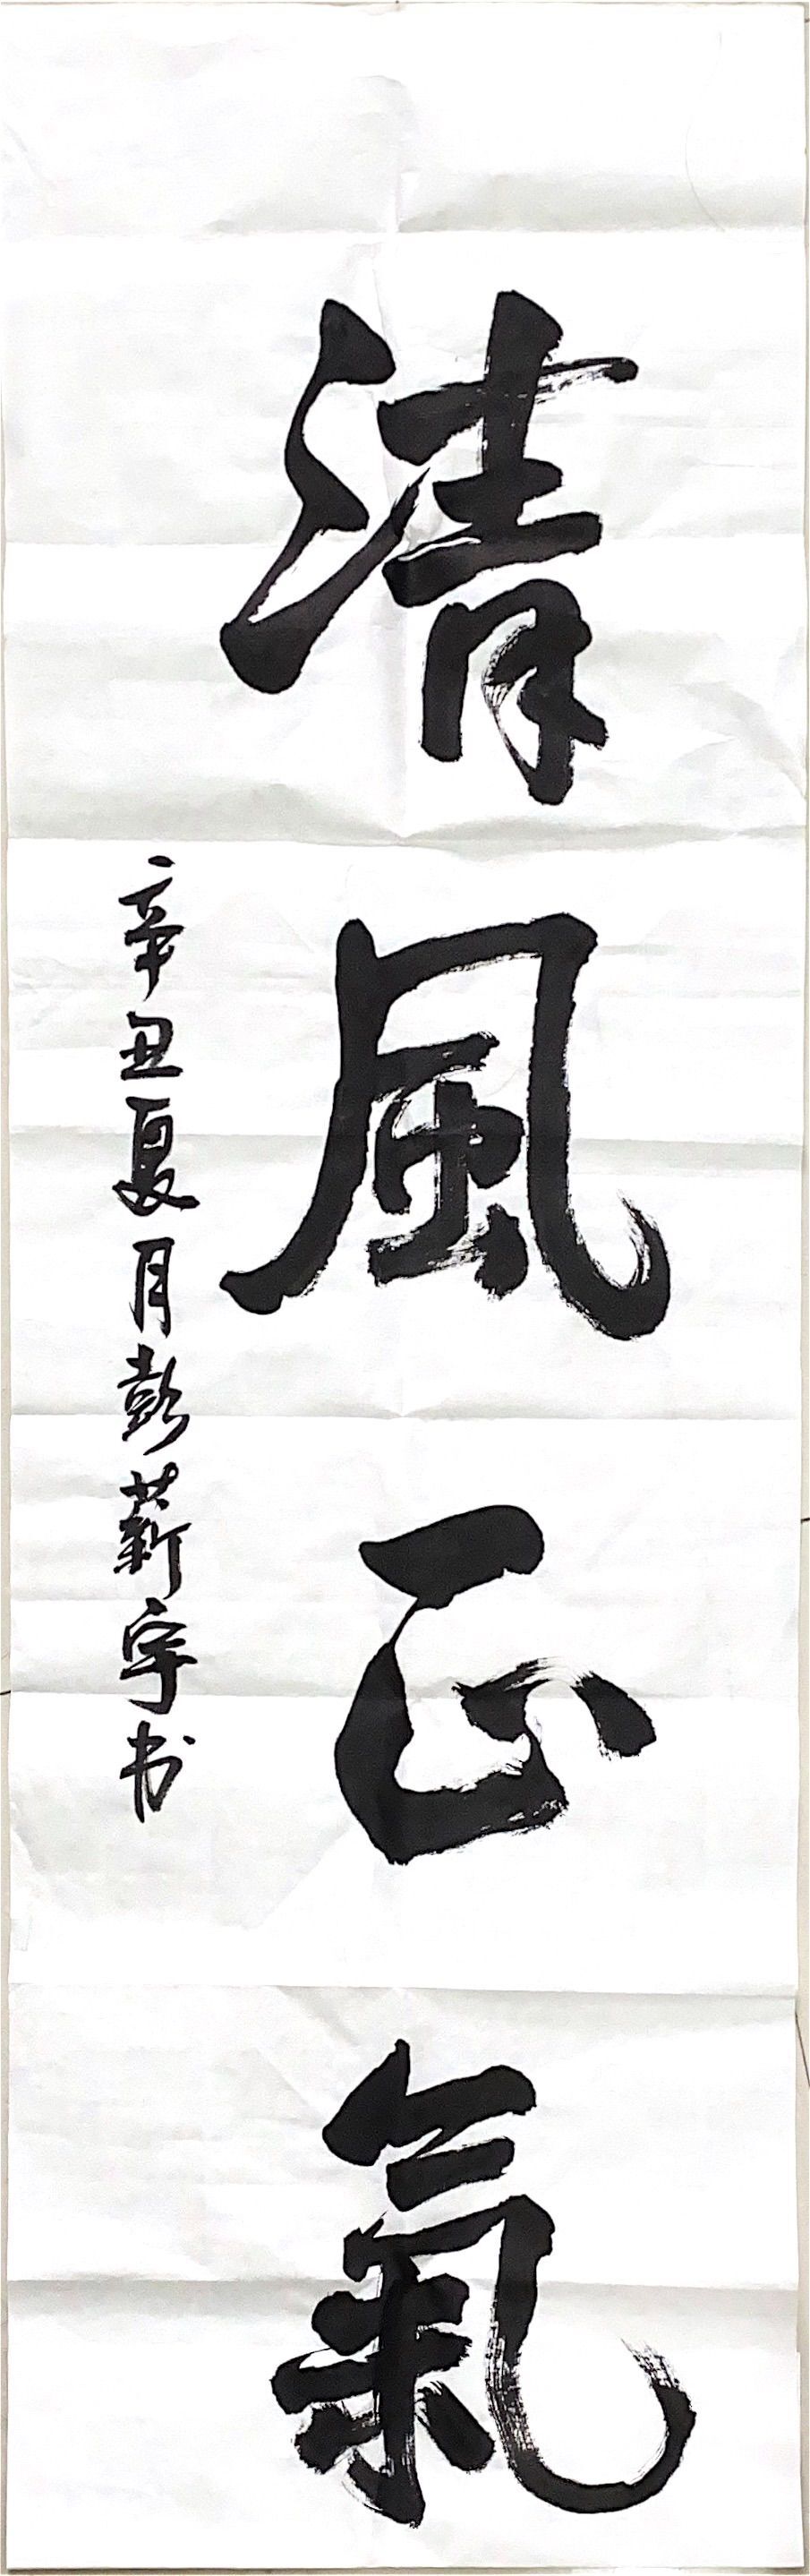 清風正氣
辛丑夏月彭薪宇书